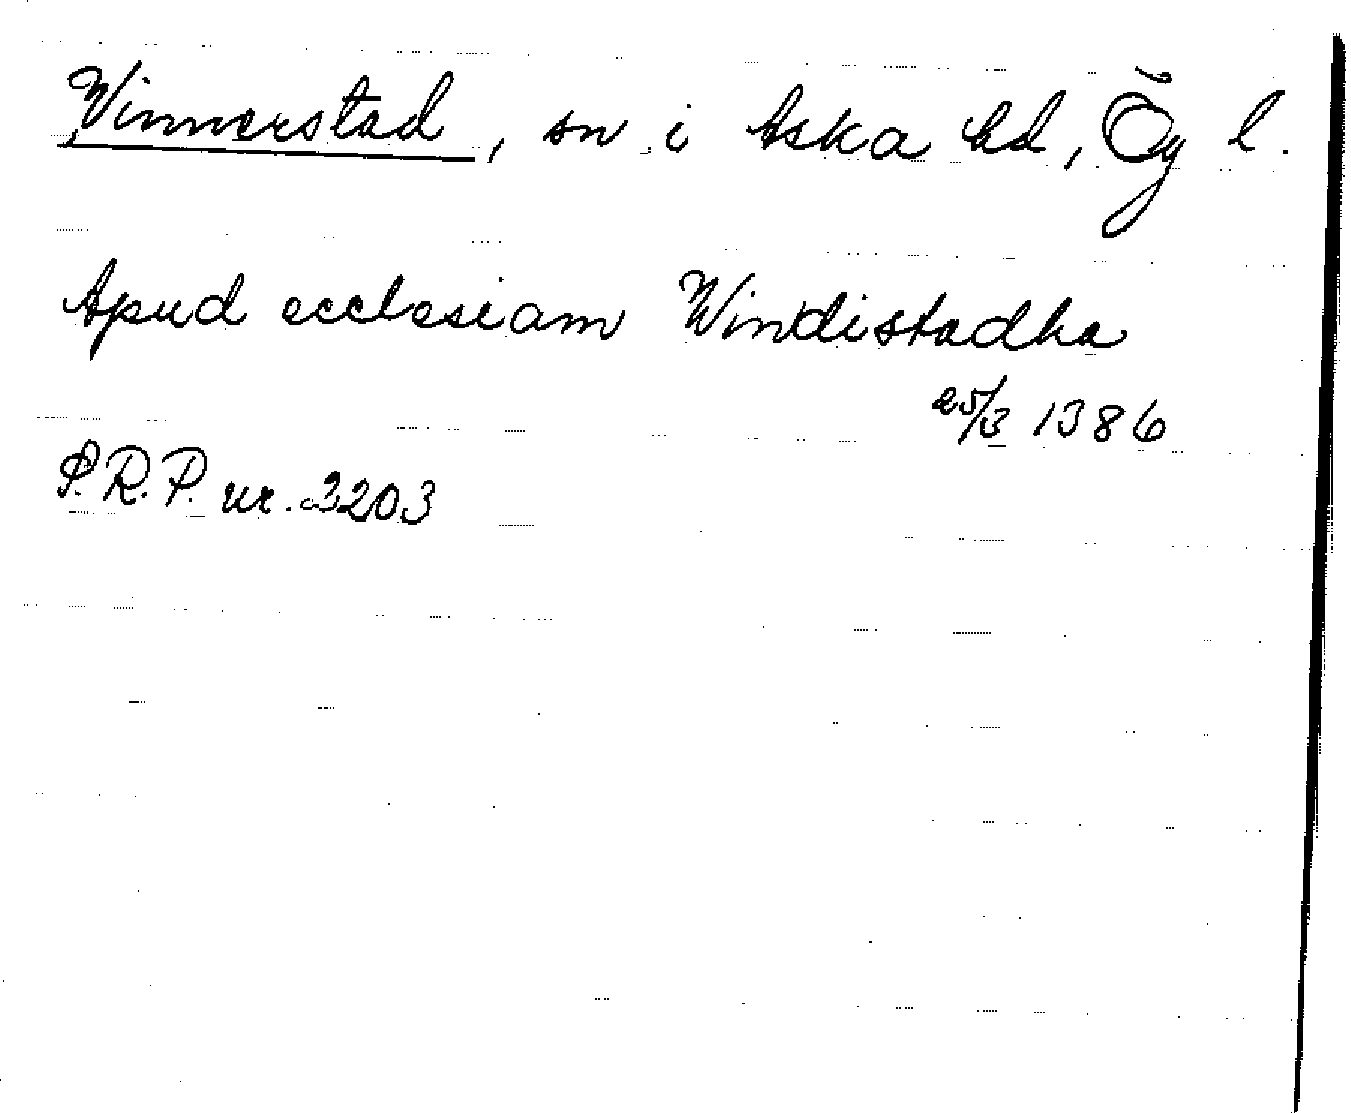 Vinnerstad, sn i Aska hd, Ög l.
Apud ecclesiam Windistadha
25/3 1386
S.R.P. nr. 2203